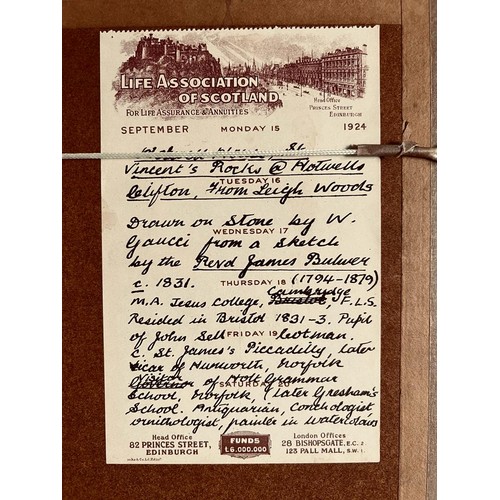 LIFE ASSOCIATION
OF SCOTLAND
FOR LIFE ASSURANCE & ANNUITIES
Head Office
PRINCES STREET
EDINBURGH
SEPTEMBER MONDAY 15 1924
St.
Vincent's Rocks @ Hotwells
TUESDAY 16
Clifton, From Leigh Woods
Drawn on Stone by W.
WEDNESDAY 17
Gauci from a Sketch
by the Revd James Bulwer
c. 1831. THURSDAY 18 (1794-1879)
Cambridge
M.A. Jesus College, Bristol, F.L.S.
Resided in Bristol 1831-3. Pupil
of John Sell FRIDAY 19 Cotman.
C. St. James's Piccadilly, later
Vicar of Hunworth, Norfolk
Visitor
Governor of Holt Grammar
SATURDAY 20
School, Norfolk, (later Gresham's
School. Antiquarian, Conchologist,
ornithologist, painter in Watercolours
Head Office
82 PRINCES STREET,
EDINBURGH
FUNDS
£6,000,000
London Offices
28 BISHOPSGATE, E.C. 2
123 PALL MALL, S.W. 1